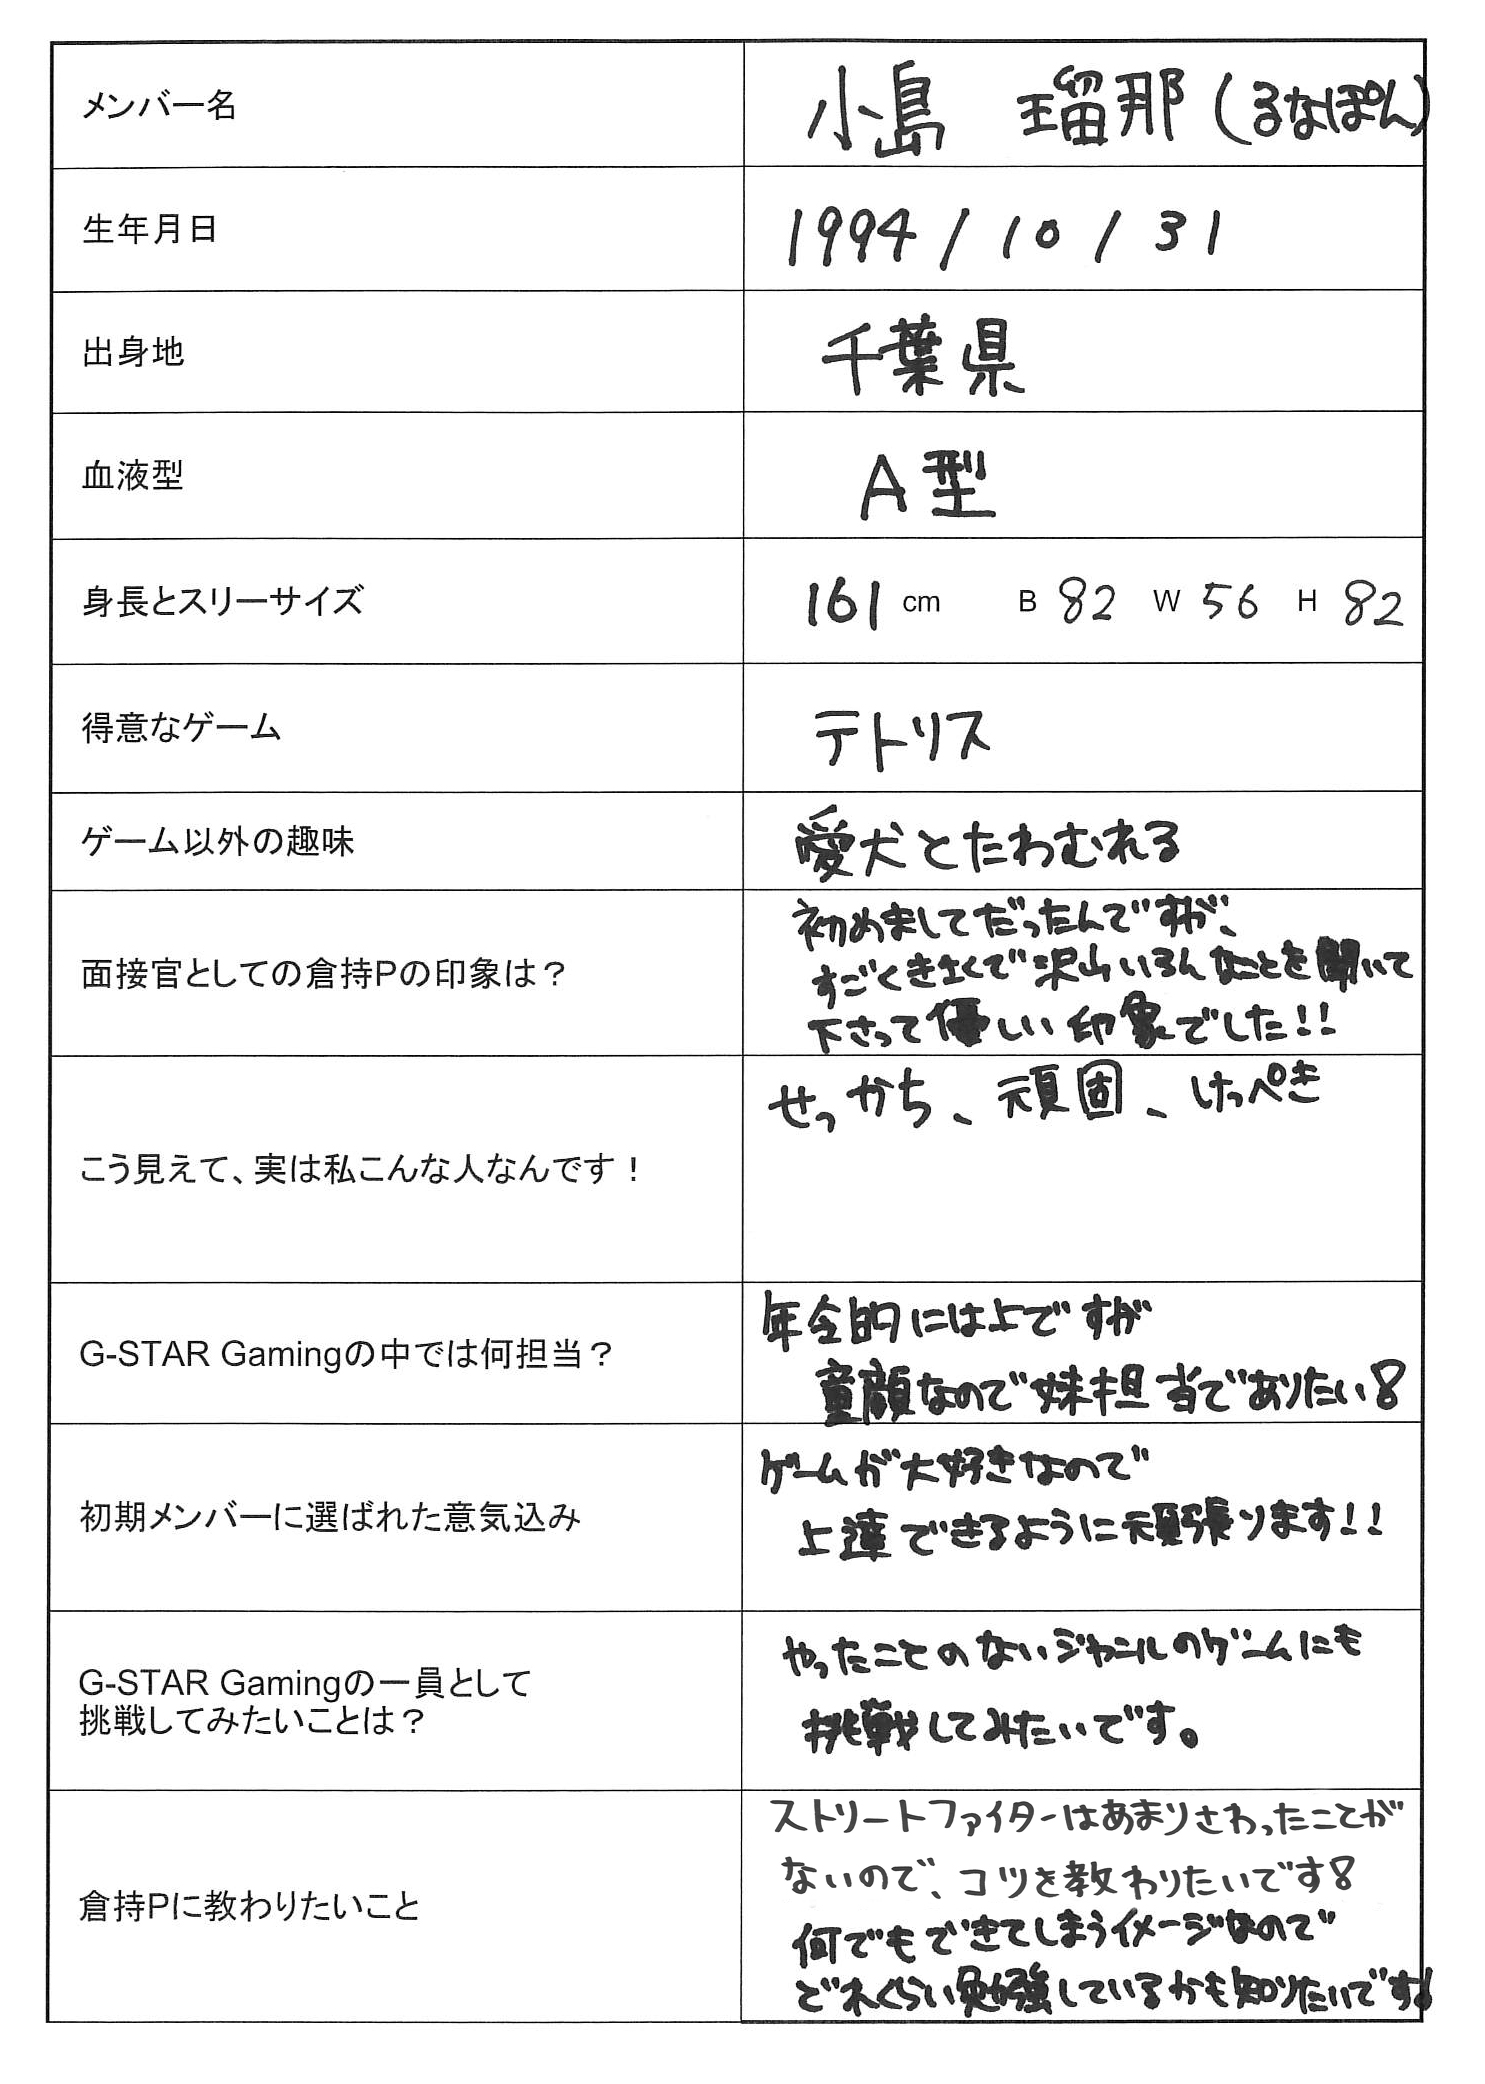 メンバー名
小島 瑠那(るなぽん)
生年月日
1994/10/31
出身地
千葉県
血液型
A型
身長とスリーサイズ
161 cm B 82 W 56 H 82
得意なゲーム
テトリス
ゲーム以外の趣味
愛犬とたわむれる
面接官としての倉持Pの印象は？
初めましてだったんですが、
すごくきさくで沢山いろんなことを聞いて
下さって優しい印象でした!!
こう見えて、実は私こんな人なんです！
せっかち、頑固、けっぺき
G-STAR Gamingの中では何担当？
年令的には上ですが
童顔なので妹担当でありたい!
初期メンバーに選ばれた意気込み
ゲームが大好きなので
上達できるように頑張ります!!
G-STAR Gamingの一員として
挑戦してみたいことは？
やったことのないジャンルのゲームにも
挑戦してみたいです。
倉持Pに教わりたいこと
ストリートファイターはあまりさわったことが
ないので、コツを教わりたいです!
何でもできてしまうイメージなので
どれくらい勉強しているかも知りたいです!